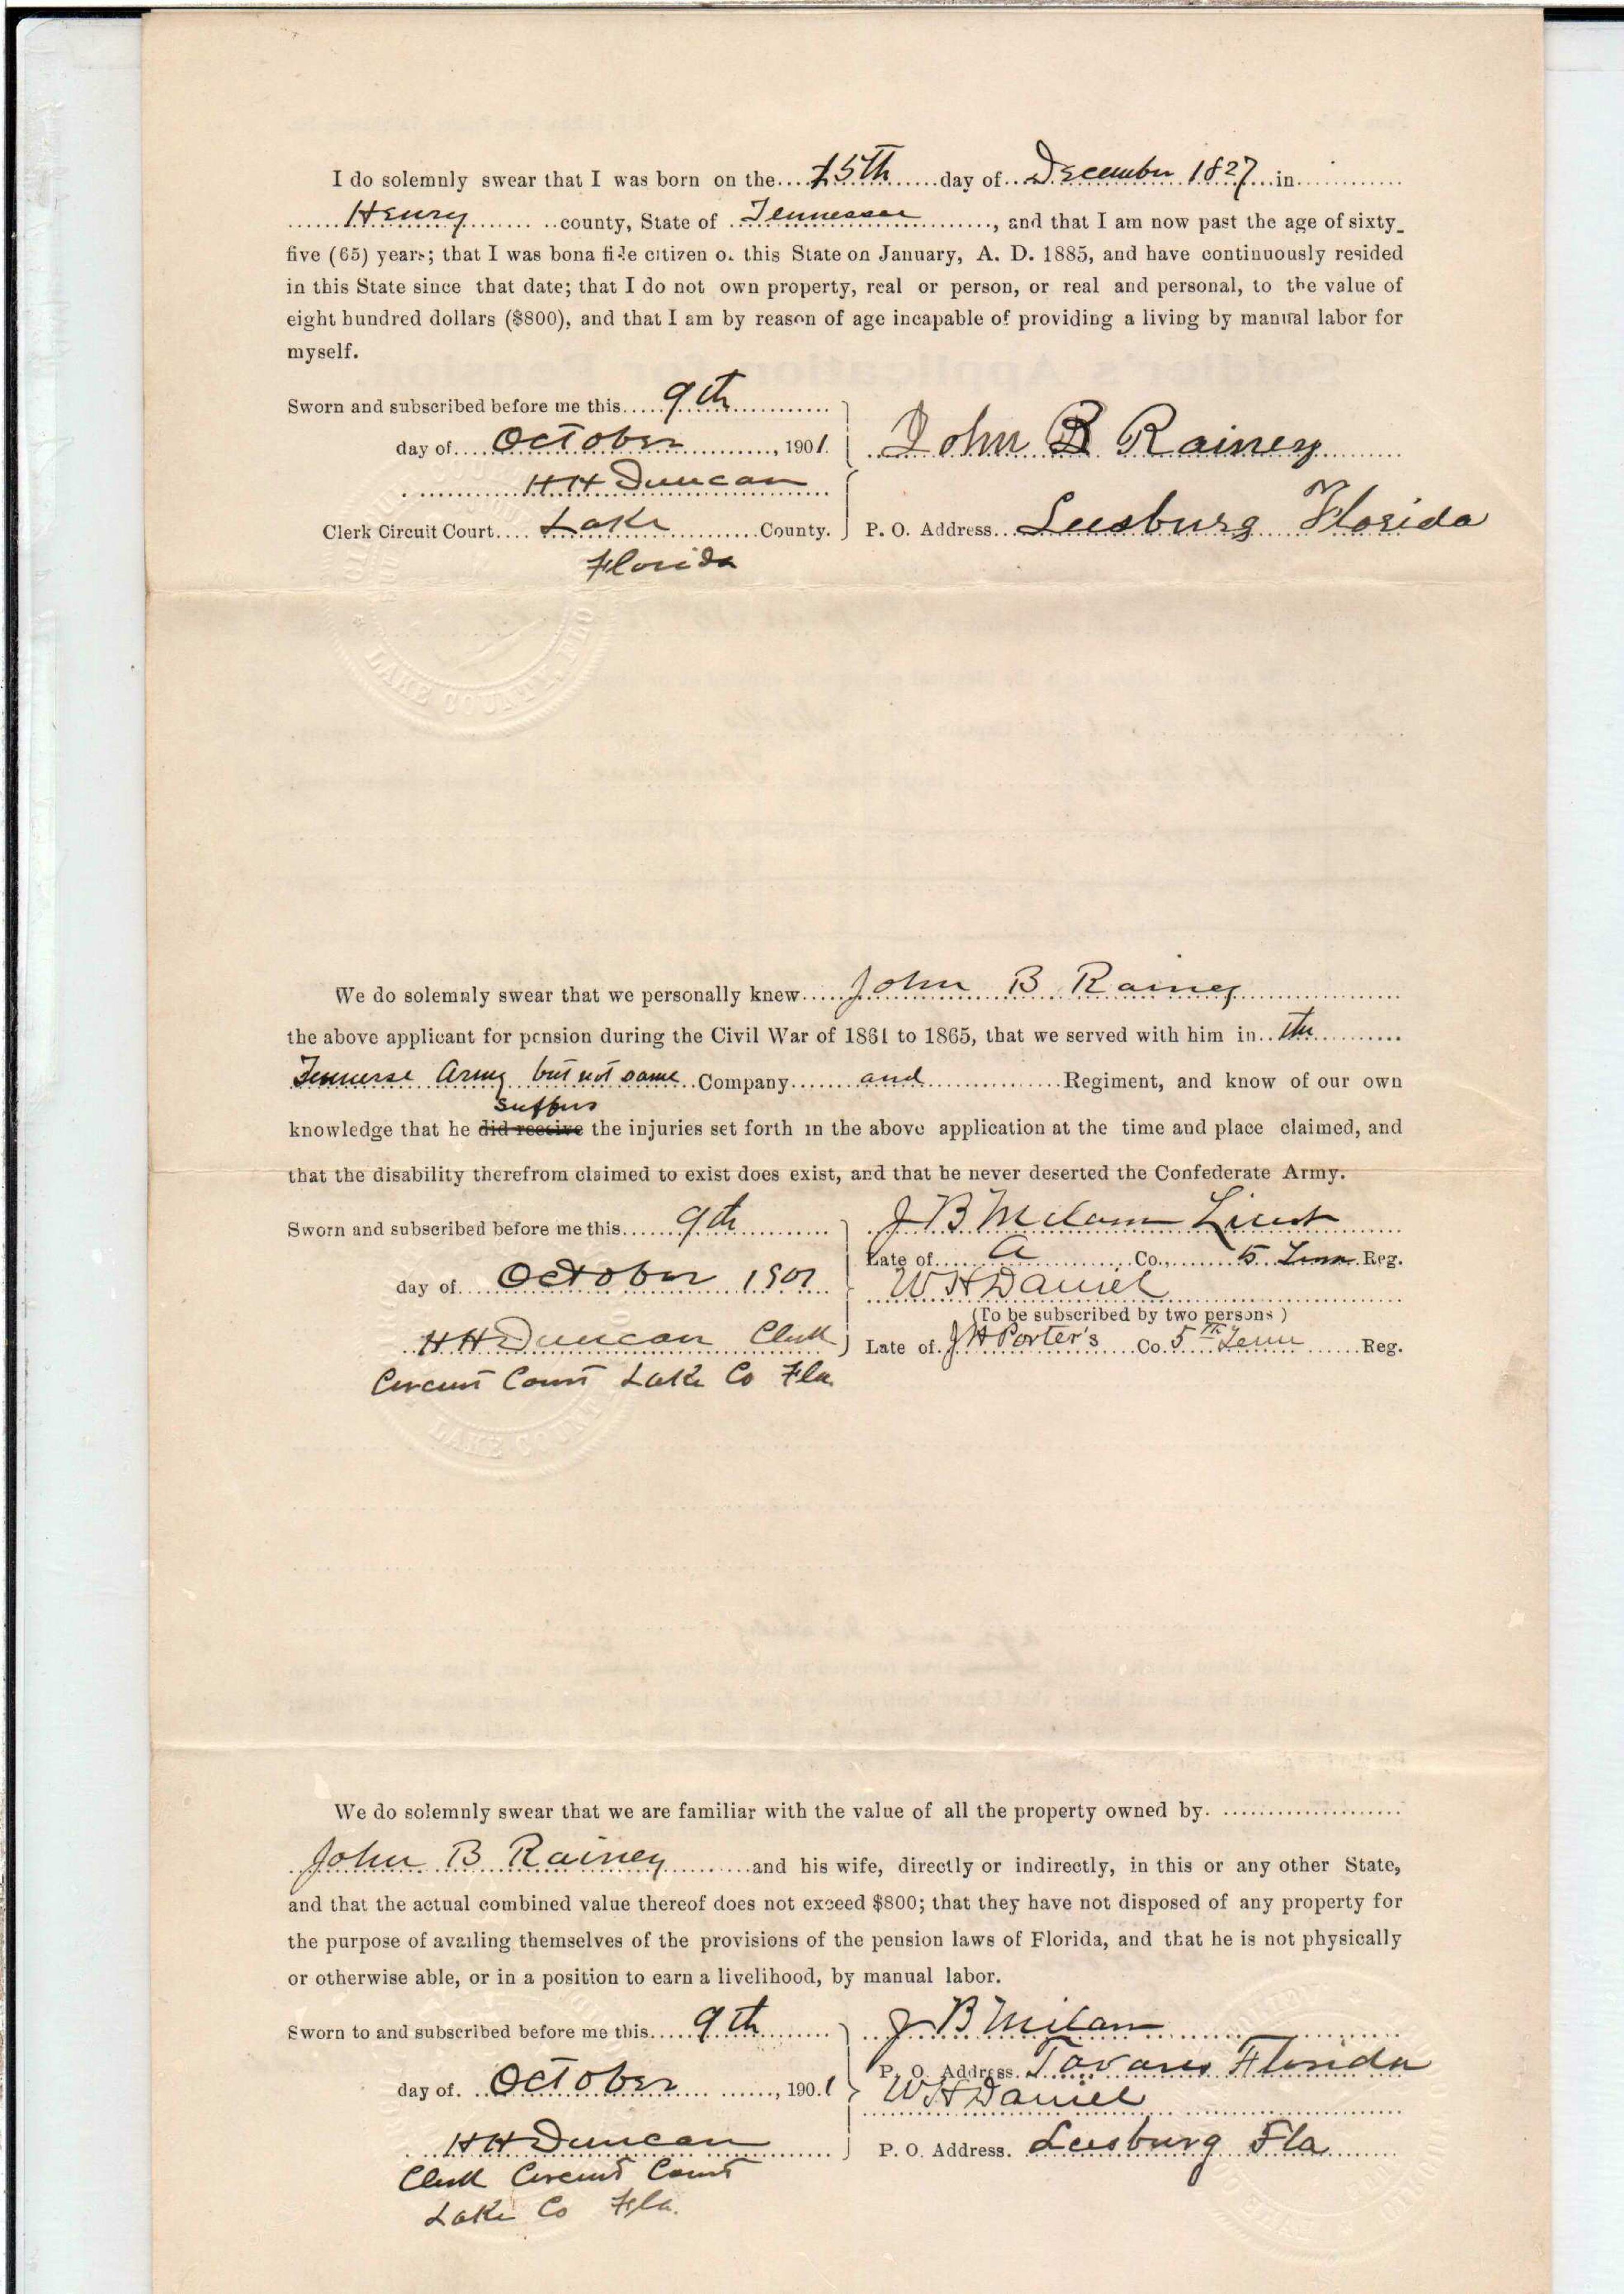 I do solemnly swear that I was born on the....15th......day of...December 1827...in.............
......Henry....... ..county, State of .Tennessee............, and that I am now past the age of sixty_
five (65) years; that I was bona fide citizen of this State on January, A. D. 1885, and have continuously resided
in this State since that date; that I do not own property, real or person, or real and personal, to the value of
eight hundred dollars ($800), and that I am by reason of age incapable of providing a living by manual labor for
myself.
Sworn and subscribed before me this.....9th............
day of....October............, 1901.
John B Rainey
H H Duncan
Clerk Circuit Court....Lake..........County.
P. O. Address...Leesburg Florida
Florida
LAKE COUNTY, FLO
We do solemnly swear that we personally knew.....John B Rainey..................
the above applicant for pension during the Civil War of 1861 to 1865, that we served with him in..the..........
Tennesse Army but not same..Company.......and..............Regiment, and know of our own
suffers
knowledge that he did receive the injuries set forth in the above application at the time and place claimed, and
that the disability therefrom claimed to exist does exist, and that he never deserted the Confederate Army.
Sworn and subscribed before me this.....9th..........
J B Milam Lieut
Late of.....A............Co.,........5 Tenn Reg.
day of...October 1901
W H Daniel
(To be subscribed by two persons)
H H Duncan Clerk
Late of.J H Porter's....Co. 5th Tenn......Reg.
Circuit Court Lake Co Fla.
LAKE COUNT
We do solemnly swear that we are familiar with the value of all the property owned by. ...................
John B Rainey.........and his wife, directly or indirectly, in this or any other State,
and that the actual combined value thereof does not exceed $800; that they have not disposed of any property for
the purpose of availing themselves of the provisions of the pension laws of Florida, and that he is not physically
or otherwise able, or in a position to earn a livelihood, by manual labor.
Sworn to and subscribed before me this.....9th.........
J B Milam
P. O. Address. Tavares Florida
day of. ..October.... ......., 190.1
W H Daniel
H H Duncan
P. O. Address. Leesburg Fla
Clerk Circuit Court
Lake Co Fla.